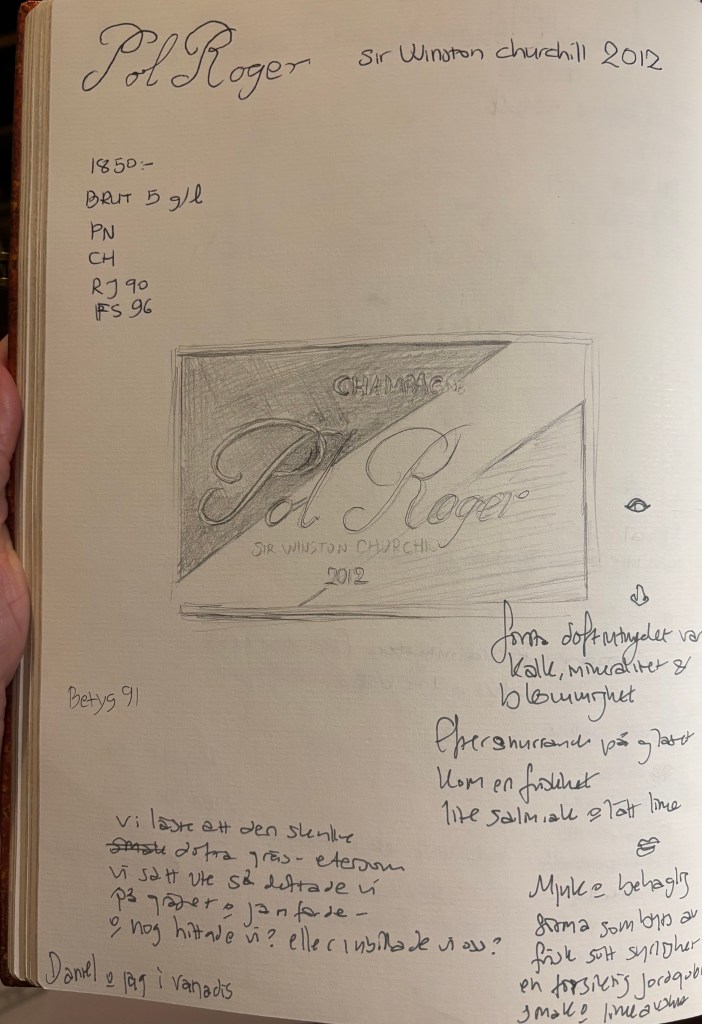 Pol Roger Sir Winston Churchill 2012
1850:-
BRUT 5 g/l
PN
CH
RJ 90
FS 96
CHAMPAGNE
Pol Roger
SIR WINSTON CHURCHILL
2012
första doftintrycket var
kalk, mineralitet &
blommighet
Efter snurrande på glaset
kom en friskhet
lite salmiak o lätt lime
Betys 91
vi läste att den skulle
smak dofta gräs - eftersom
vi satt ute så doftade vi
på gräset o jämförde -
o nog hittade vi? eller inbillade vi oss?
Daniel o jag i vanadis
Mjuk o behaglig
som byts av
frisk
en försiktig
smak o lime